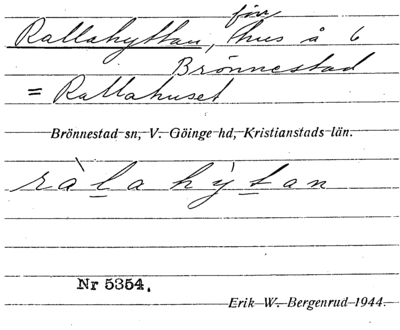 Rallahyttan, förr hus å 6
Brönnestad
= Rallahuset
Brönnestad sn, V. Göinge hd, Kristianstads län.
ràlahỳtan
Nr 5354.
Erik W. Bergenrud 1944.